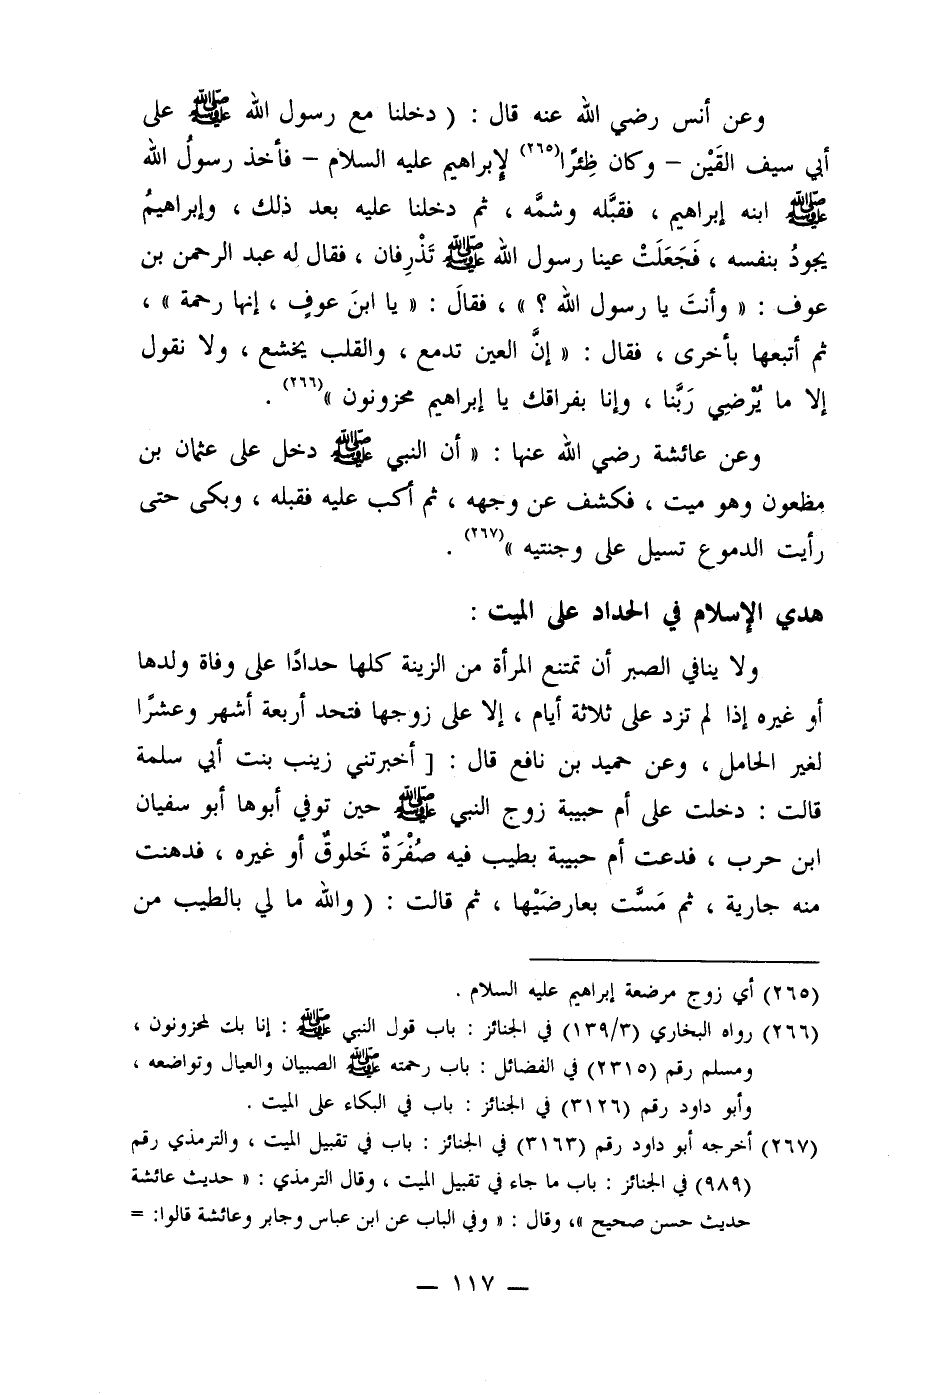 وعن أنس رضي الله عنه قال : ( دخلنا مع رسول الله ﷺ على
أبي سيف القَيْن – وكان ظِئرًا(٢٦٥) لإبراهيم عليه السلام – فأخذ رسولُ الله
ﷺ ابنه إبراهيم ، فقبَّله وشمَّه ، ثم دخلنا عليه بعد ذلك ، وإبراهيمُ
يجودُ بنفسه ، فَجَعَلَتْ عينا رسول الله ﷺ تَذْرِفان ، فقال له عبد الرحمن بن
عوف : « وأنتَ يا رسول الله ؟ » ، فقالَ : « يا ابنَ عوفٍ ، إنها رحمة » ،
ثم أتبعها بأخرى ، فقال : « إنَّ العين تدمع ، والقلب يخشع ، ولا نقول
إلا ما يُرْضِي رَبَّنا ، وإنا بفراقك يا إبراهيم محزونون »(٢٦٦) .
وعن عائشة رضي الله عنها : « أن النبي ﷺ دخل على عثمان بن
مظعون وهو ميت ، فكشف عن وجهه ، ثم أكب عليه فقبله ، وبكى حتى
رأيت الدموع تسيل على وجنتيه »(٢٦٧) .
هدي الإسلام في الحداد على الميت :
ولا ينافي الصبر أن تمتنع المرأة من الزينة كلها حدادًا على وفاة ولدها
أو غيره إذا لم تزد على ثلاثة أيام ، إلا على زوجها فتحد أربعة أشهر وعشرًا
لغير الحامل ، وعن حميد بن نافع قال : [ أخبرتني زينب بنت أبي سلمة
قالت : دخلت على أم حبيبة زوج النبي ﷺ حين توفي أبوها أبو سفيان
ابن حرب ، فدعت أم حبيبة بطيب فيه صُفْرَةٌ خَلوقٌ أو غيره ، فدهنت
منه جارية ، ثم مَسَّت بعارضَيْها ، ثم قالت : ( والله ما لي بالطيب من
(٢٦٥) أي زوج مرضعة إبراهيم عليه السلام .
(٢٦٦) رواه البخاري (١٣٩/٣) في الجنائز : باب قول النبي ﷺ : إنا بك لمحزونون ،
ومسلم رقم (٢٣١٥) في الفضائل : باب رحمته ﷺ الصبيان والعيال وتواضعه ،
وأبو داود رقم (٣١٢٦) في الجنائز : باب في البكاء على الميت .
(٢٦٧) أخرجه أبو داود رقم (٣١٦٣) في الجنائز : باب في تقبيل الميت ، والترمذي رقم
(٩٨٩) في الجنائز : باب ما جاء في تقبيل الميت ، وقال الترمذي : « حديث عائشة
حديث حسن صحيح »، وقال : « وفي الباب عن ابن عباس وجابر وعائشة قالوا: =
— ١١٧ —